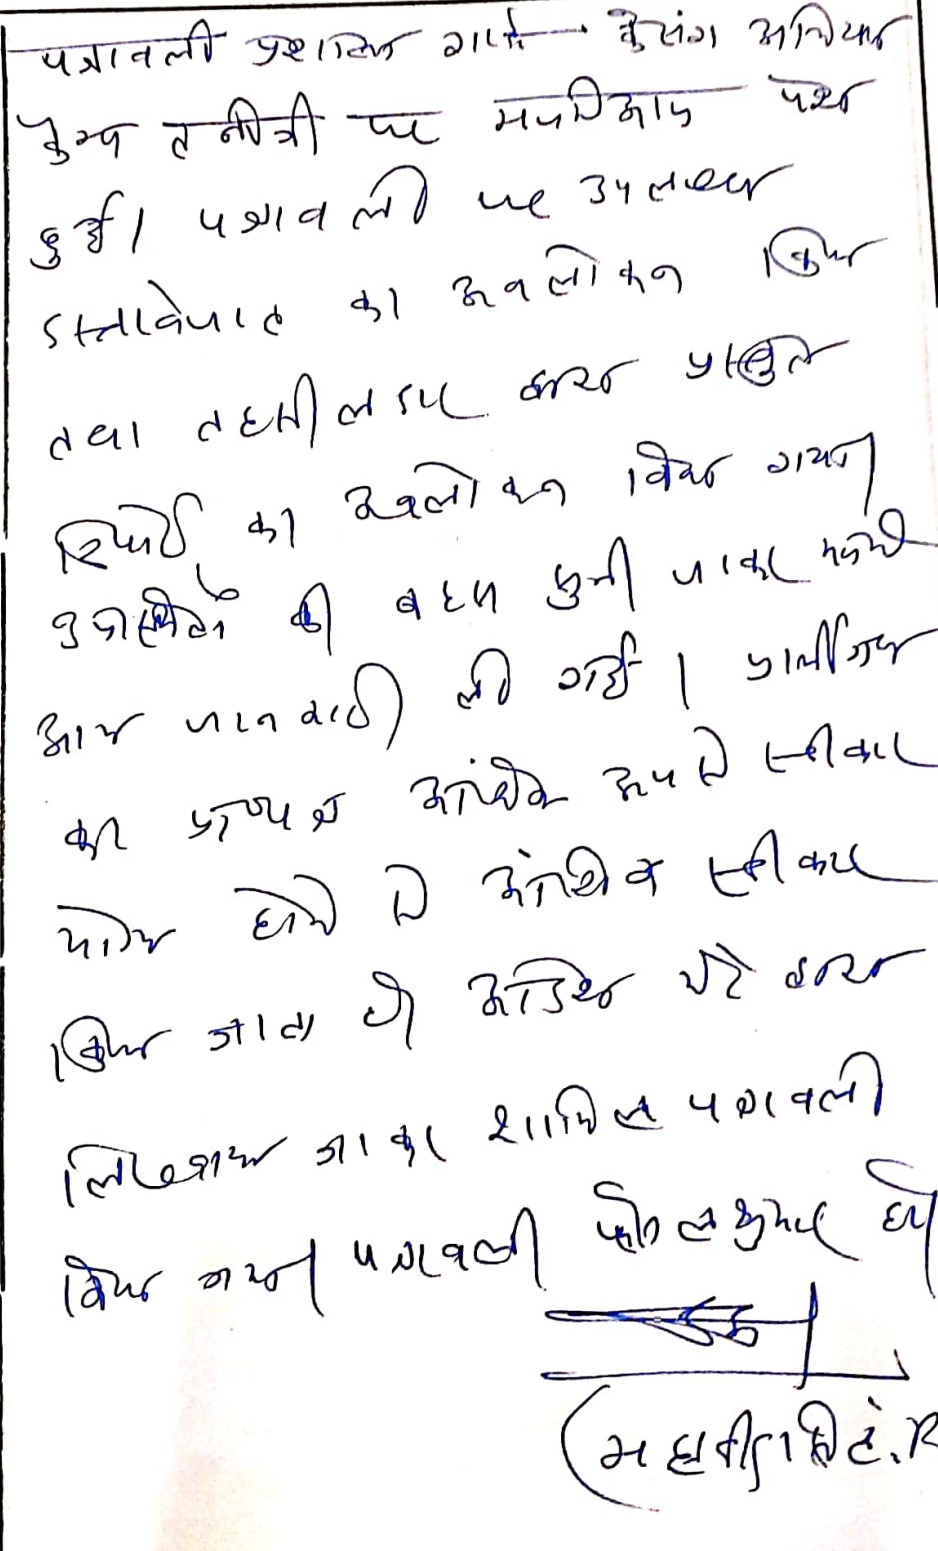 पत्रावली प्रशासन गांव के संग अभियान
कैम्प पर पेश
हुई। पत्रावली पर उपलब्ध
दस्तावेजात का अवलोकन किया
तथा तहसीलदार द्वारा प्रस्तुत
रिपोर्ट का अवलोकन किया गया।
की बहस सुनी जाकर
आज ली गई। प्रार्थीगण
का प्रा०पत्र आंशिक रूप से स्वीकार
योग्य होने से आंशिक स्वीकार
किया जाता है। आदेश मेरे द्वारा
लिखवाया जाकर शामिल पत्रावली
किया गया। पत्रावली फैसल शुमार हो